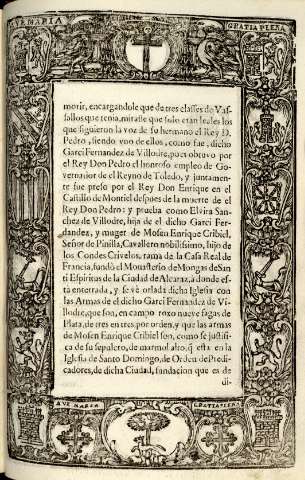 AVE MARIA
GRATIA PLENA
morir, encargandole que de tres classes de Vas-
sallos que tenia, mirasse que solo eran leales los
que siguieron la voz de su hermano el Rey D.
Pedro, siendo vno de ellos, como fue, dicho
Garci Fernandez de Villodre, pues obtuvo por
el Rey Don Pedro el honroso empleo de Go-
vernador de el Reyno de Toledo, y juntamen-
te fue preso por el Rey Don Enrique en el
Castillo de Montiel despues de la muerte de el
Rey Don Pedro: y prueba como Elvira San-
chez de Villodre, hija de el dicho Garci Fer-
nandez, y muger de Mosen Enrique Cribiel,
Señor de Pinilla, Cavallero nobilissimo, hijo de
los Condes Crivelos, rama de la Casa Real de
Francia, fundò el Monasterio de Monjas de San-
ti Espiritus de la Ciudad de Alcaraz, à donde es-
tà enterrada, y se vè orlada dicha Iglesia con
las Armas de el dicho Garci Fernandez de Vi-
llodre, que son, en campo roxo nueve fagas de
Plata, de tres en tres, por orden, y que las armas
de Mosen Enrique Cribiel son, como se justifi-
ca de su sepulcro, de marmol alto, q̃ està en la
Iglesia de Santo Domingo, de Orden de Predi-
cadores, de dicha Ciudad, fundacion que es de
di-
AVE MARIA
GRATIA PLENA